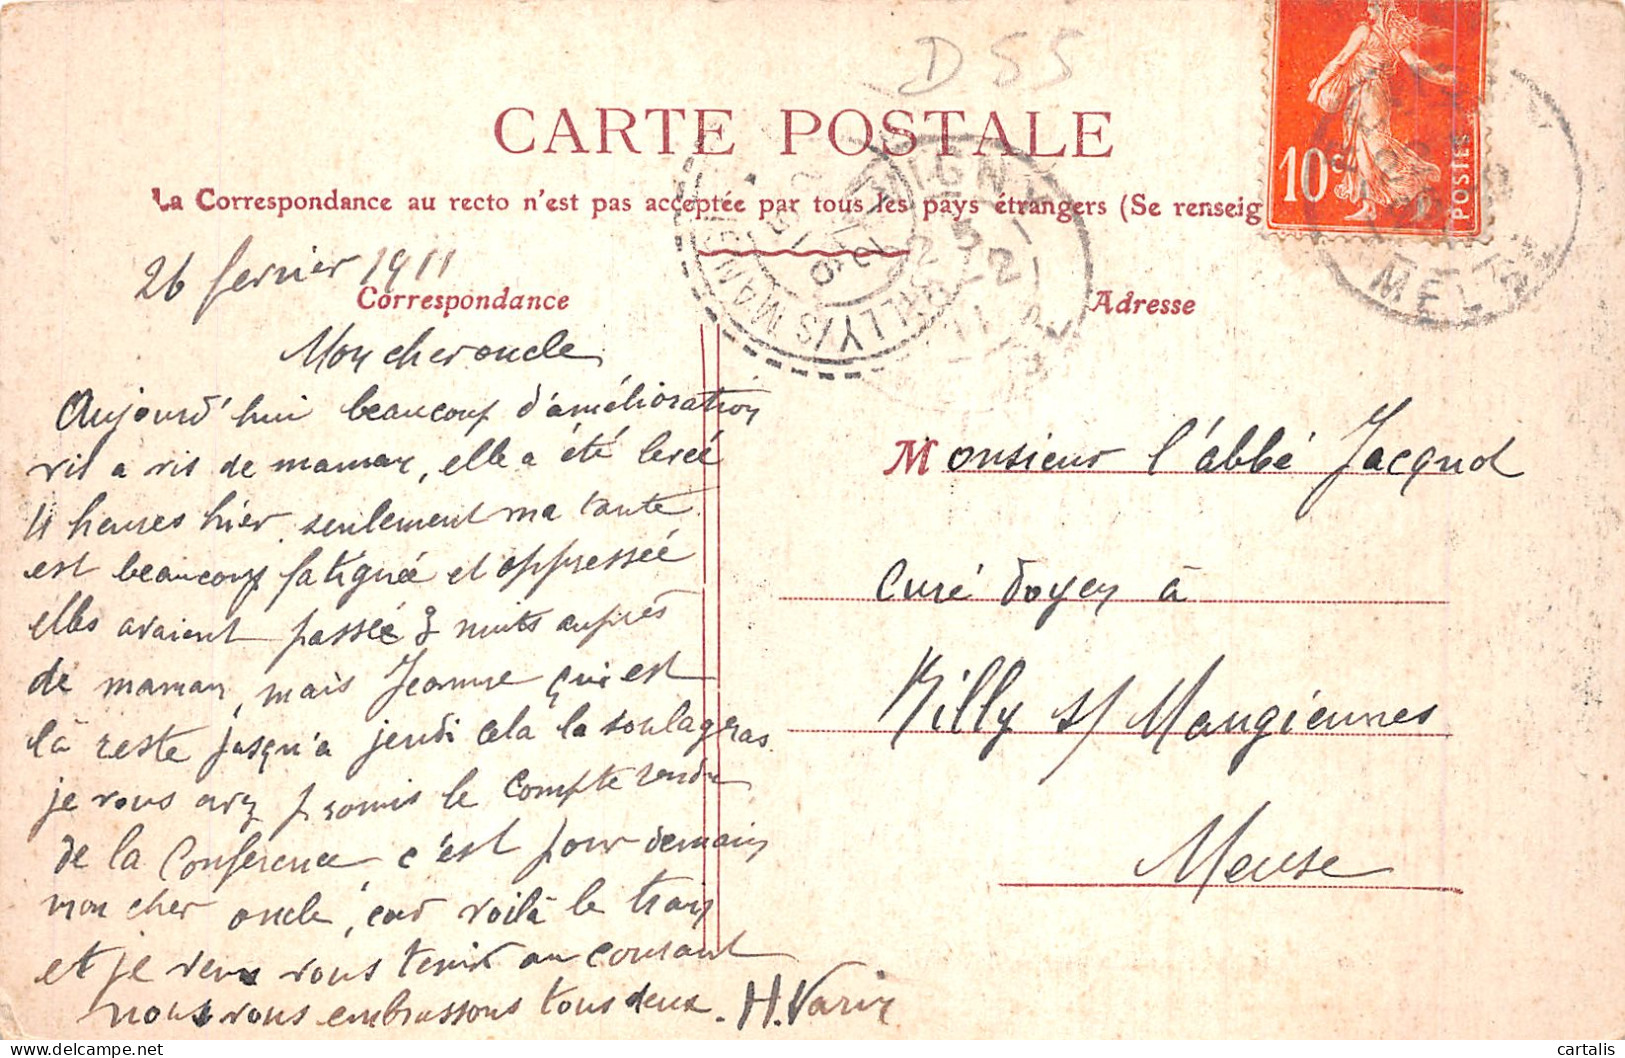 D 55
CARTE POSTALE
La Correspondance au recto n'est pas acceptée par tous les pays étrangers (Se renseig
10c
POSTES
26 fevrier 1911
Correspondance
Adresse
MELZ
BILLY/S MANGIENNES
Mon cher oncle
Aujourd'hui beaucoup d'amélioration
vis a vis de maman, elle a été levée
4 heures hier seulement ma tante
est beaucoup fatiguée et oppressée
elles avaient passée 3 nuits auprès
de maman, mais Jeanne qui est
là reste jusqu'a jeudi cela la soulageras
je vous avez promis le compte rendu
de la Conference c'est pour demain
mon cher oncle, car voilà le train
et je veux vous tenir au courant
nous vous embrassons tous deux. H. Varin
Monsieur l'abbé Jacquot
Curé doyen à
Billy s/ Mangiennes
Meuse
cartalis
delcampe.net